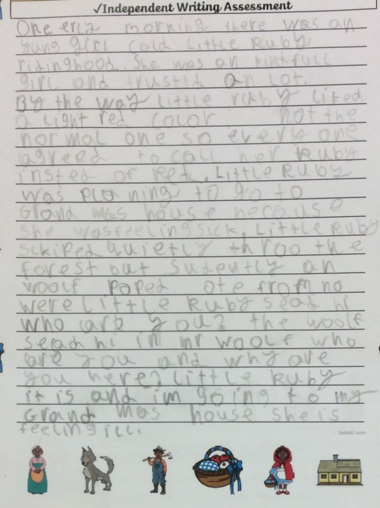 ✓Independent Writing Assessment
One eriy morning there was an
yung girl cald Little Ruby
ridinghood. She was an kindfull
girl and trustid an lot.
By the way little ruby liked
a light red color not the
normal one so every one
agreed to call her Ruby
insted of Red. Little Ruby
was planing to go to
Grand mas house because
She wasfeelingsick. Little Ruby
sckiped quietly throo the
forest but sudently an
woolf poped ote from no
were Little Ruby sead hi
who are you? the woolf
sead hi im mr woolf who
are you and why are
you here? Little Ruby
it is and im going to my
Grand mas house she is
feeling ill.